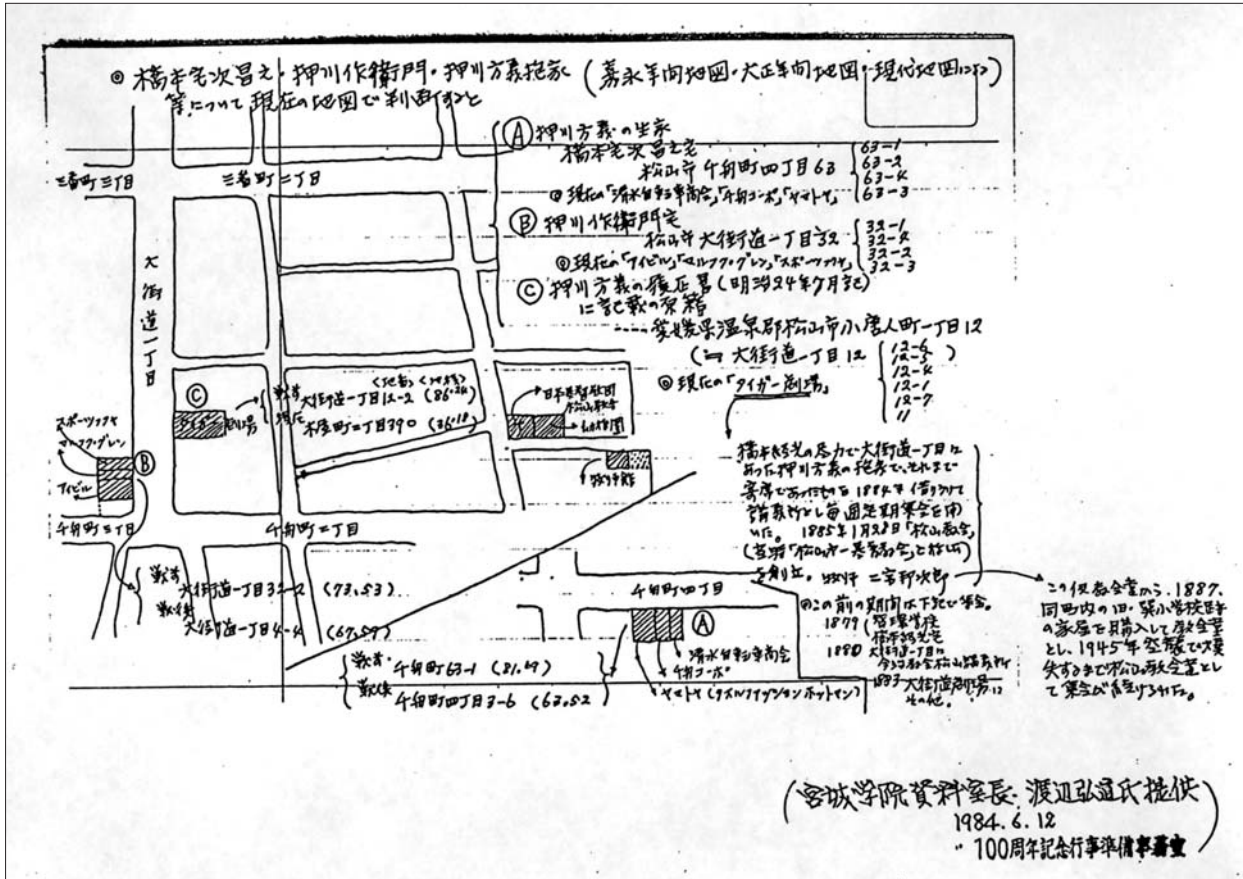 ◎ 橋本宅次昌之・押川作衛門・押川方義抱家 (嘉永年間地図・大正年間地図・現代地図による)
等について現在の地図で判断すると
Ⓐ 押川方義の生家
橋本宅次昌之宅
松山市千舟町四丁目63
63-1
63-2
63-4
63-3
◎現在の「清水自転車商会」「千舟コーポ」「ヤマトヤ」
Ⓑ 押川作衛門宅
松山市大街道一丁目32
32-1
32-4
32-2
32-3
◎現在の「アイビル」「マルフク・グレン」「スポーツツタヤ」
Ⓒ 押川方義の
(明治24年7月記)
に記載の原籍
愛媛県温泉郡松山市小唐人町一丁目12
(≒ 大街道一丁目12
12-6
12-5
12-4
12-1
12-7
11
)
◎現在の「タイガー劇場」
三番町三丁目
三番町二丁目
大街道一丁目
Ⓒ
タイガー劇場
<地番> <地積>
戦前
大街道一丁目12-2 (86.24
現在
二丁目390 (36.18)
日本基督教団
松山教会
幼稚園
牧師館
スポーツツタヤ
マルフク・グレン
アイビル
Ⓑ
千舟町三丁目
千舟町二丁目
戦前
大街道一丁目32-2 (73.53)
戦後
大街道一丁目4-4 (67.57)
千舟町四丁目
Ⓐ
清水自転車商会
千舟コーポ
ヤマトヤ
戦前
千舟町63-1 (81.69)
戦後
千舟町四丁目3-6 (63.52
の尽力で大街道一丁目に
あった押川方義の抱家で、それまで
寄席であったものを1884年借りうけて
講義所とし毎週定期集会を開
いた。 1885年1月28日「松山教会」
(当時「松山第一基督教会」と称した)
を創立。 牧師 二宮邦次郎
◎この前の期間は下記で集会。
1879
1880 大街道一丁目
1883 大街道劇場に
その他。
この仮教会堂から、1887、
同町内の旧・巽小学校跡
の家屋を購入して教会堂
とし、1945年空襲で焼
失するまで松山教会堂とし
て集会が続けられた。
(宮城学院資料室長・渡辺弘道氏提供)
1984.6.12
100周年記念行事準備事務室